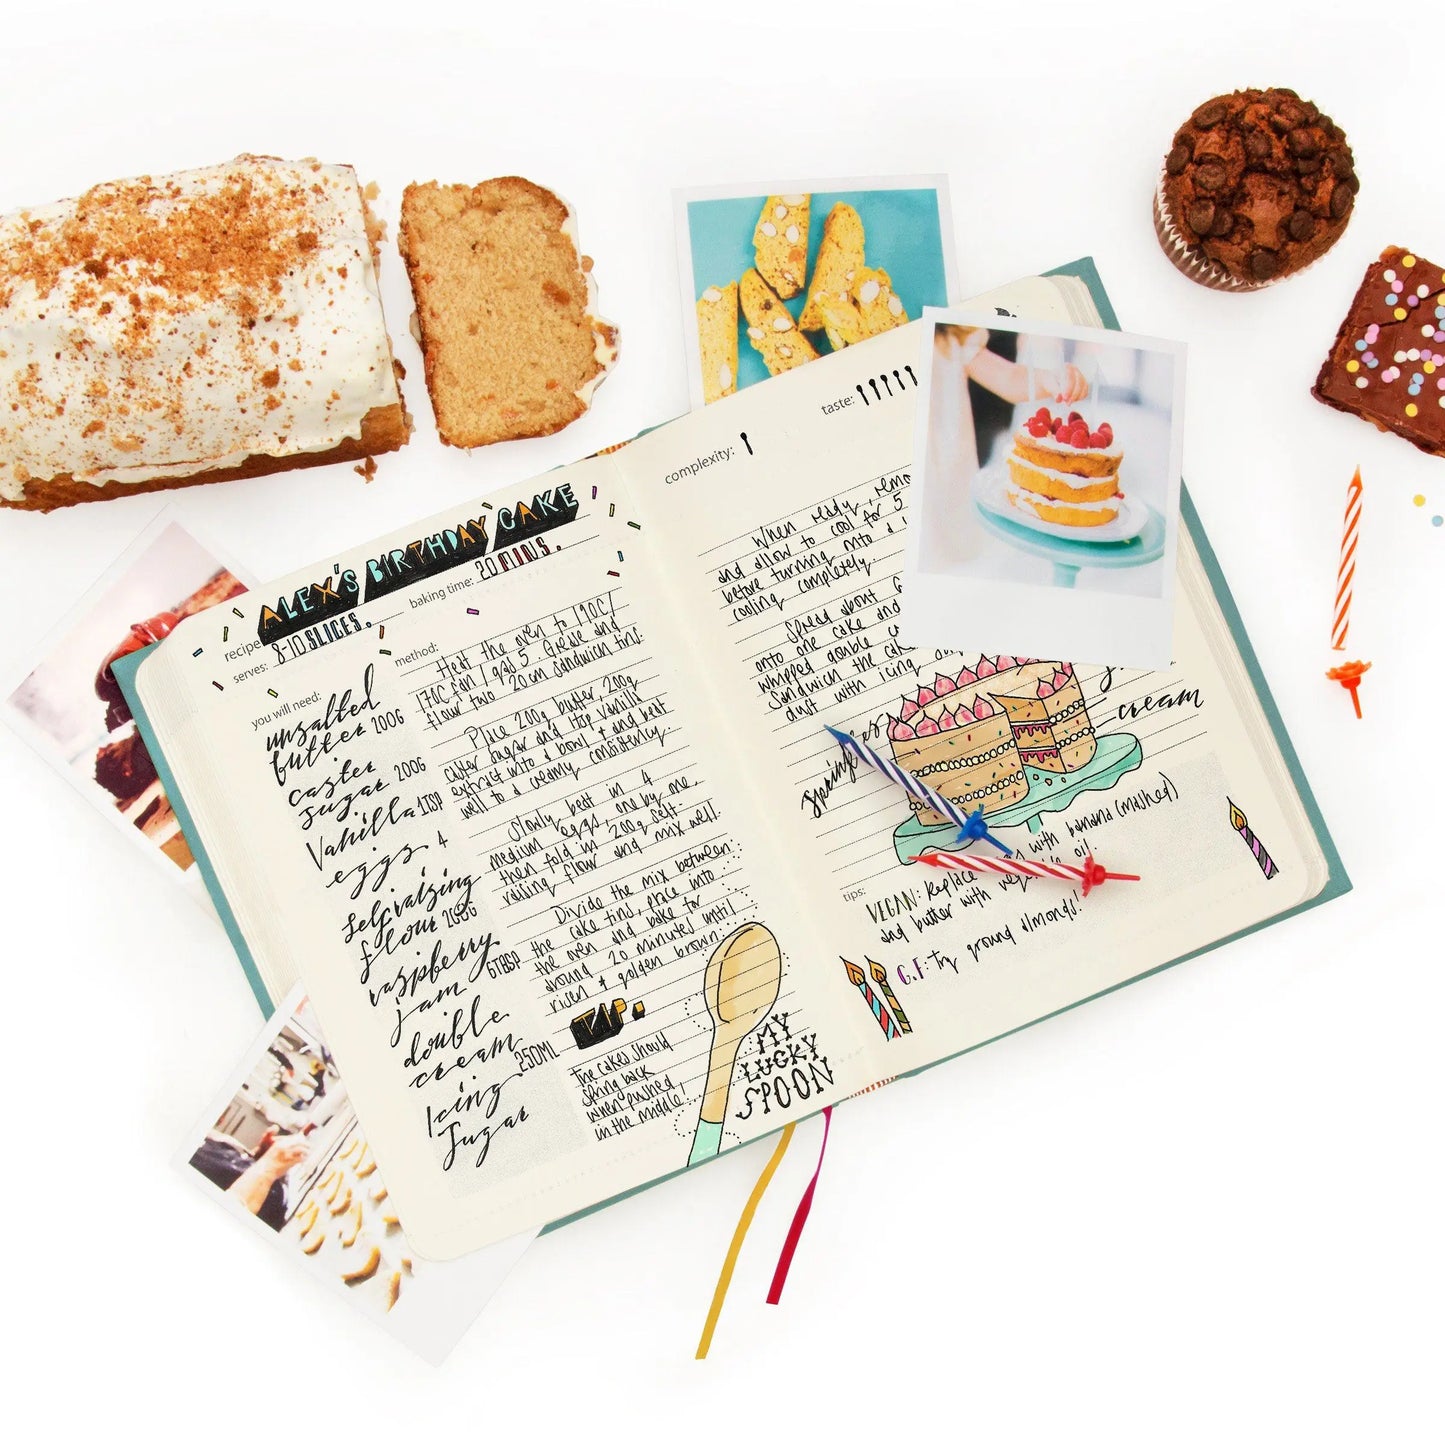 ALEX'S BIRTHDAY CAKE
recipe
serves: 8-10 SLICES.
baking time: 20 MINS.
you will need:
unsalted
butter 200G
caster
sugar 200G
Vanilla 1TSP
eggs 4
self raising
flour 200G
raspberry
jam 6TBSP
double
cream 250ML
Icing
Sugar
method:
Heat the oven to 190C/
170C fan / gas 5 Grease and
flour two 20cm sandwich tins.
Place 200g butter, 200g
caster sugar and 1tsp vanilla
extract into a bowl and beat
well to a creamy consistency.
Slowly beat in 4
medium eggs, one by me,
then fold in 200g self-
raising flour and mix well.
Divide the mix between
the cake tins, place into
the oven and bake for
around 20 minutes until
risen + golden brown.
TIP.
The cakes should
spring back
when pushed
in the middle!
MY
LUCKY
SPOON
complexity:
taste:
When ready, remo
and allow to cool for 5
before turning onto a
cooling completely.
Spread about 6
onto one cake and
whipped double
Sandwich the cak
dust with icing
cream
tips:
VEGAN: Replace with banana (mashed)
and butter with oil.
G.F: Try ground almonds!